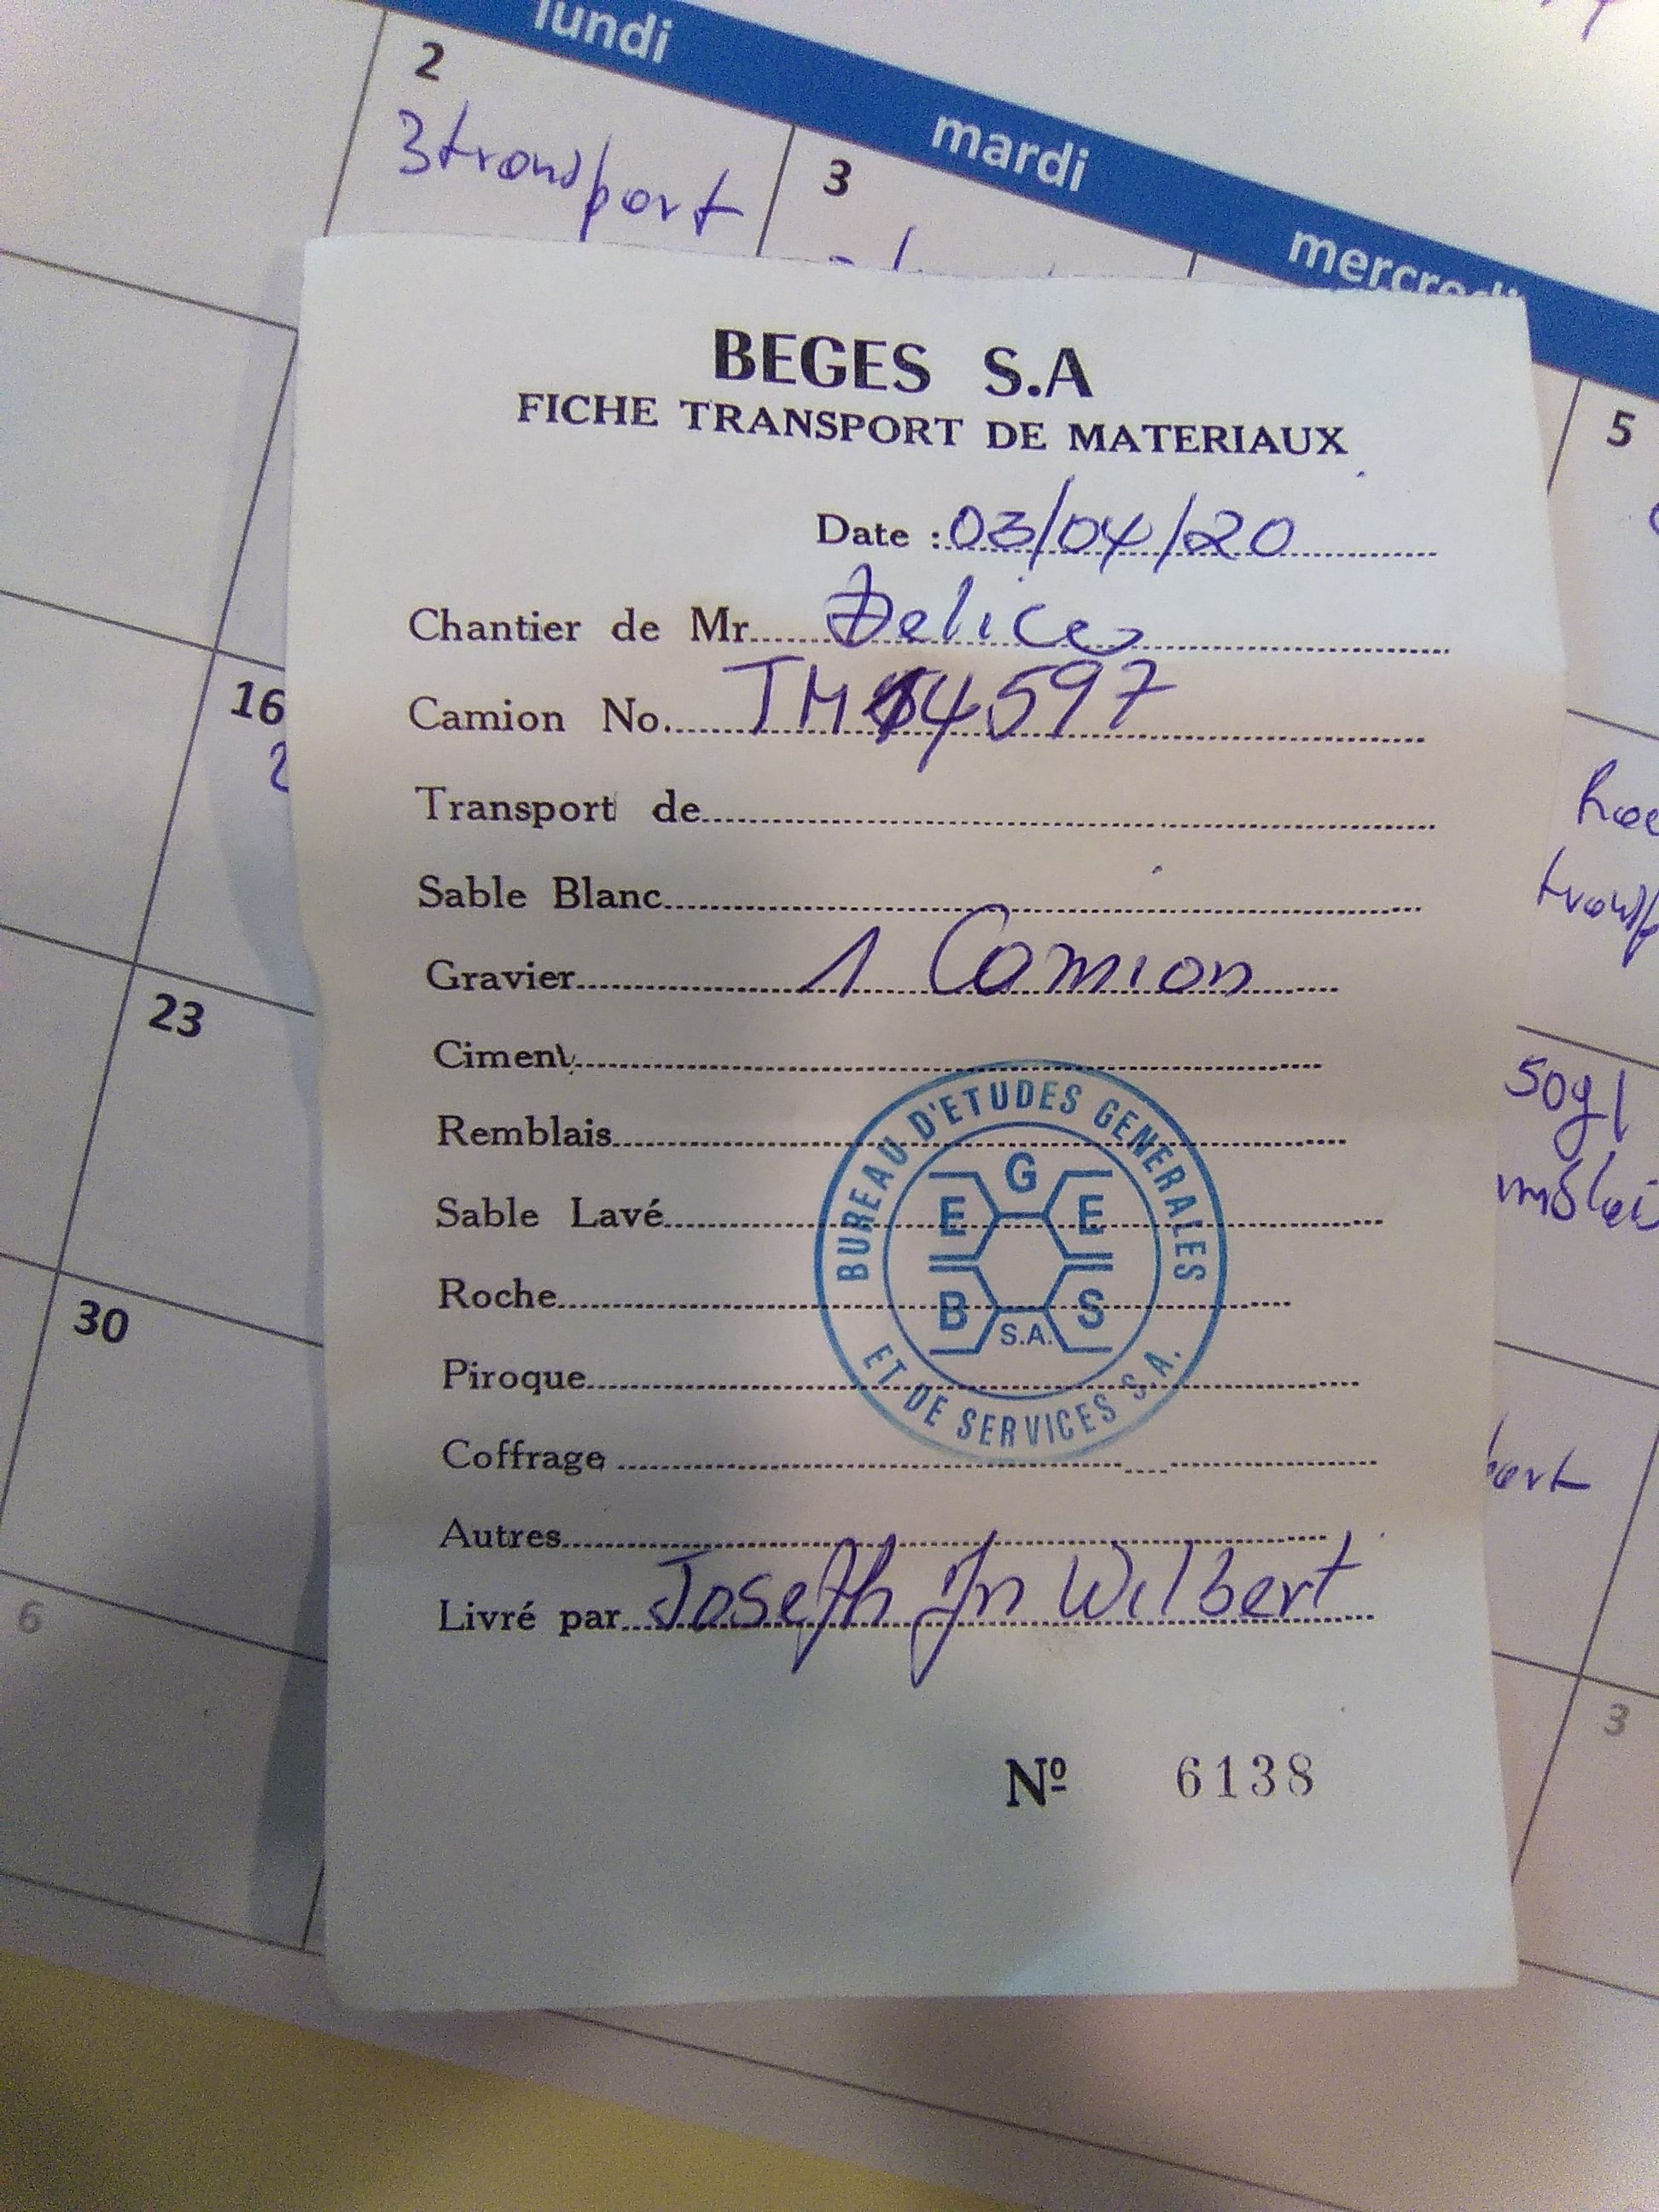 lundi
mardi
mercredi
2
3transport
3
5
16
2
23
30
6
3
50gl
BEGES S.A
FICHE TRANSPORT DE MATERIAUX
Date : 03/04/20
Chantier de Mr Delices
Camion No. 4597
Transport de
Sable Blanc
Gravier 1 Camion
Ciment
Remblais
Sable Lavé
Roche
Piroque
Coffrage
Autres
Livré par Joseph Jn Wilbert
BUREAU D'ETUDES GENERALES
ET DE SERVICES S.A.
G
E E
B S
S.A.
Nº 6138